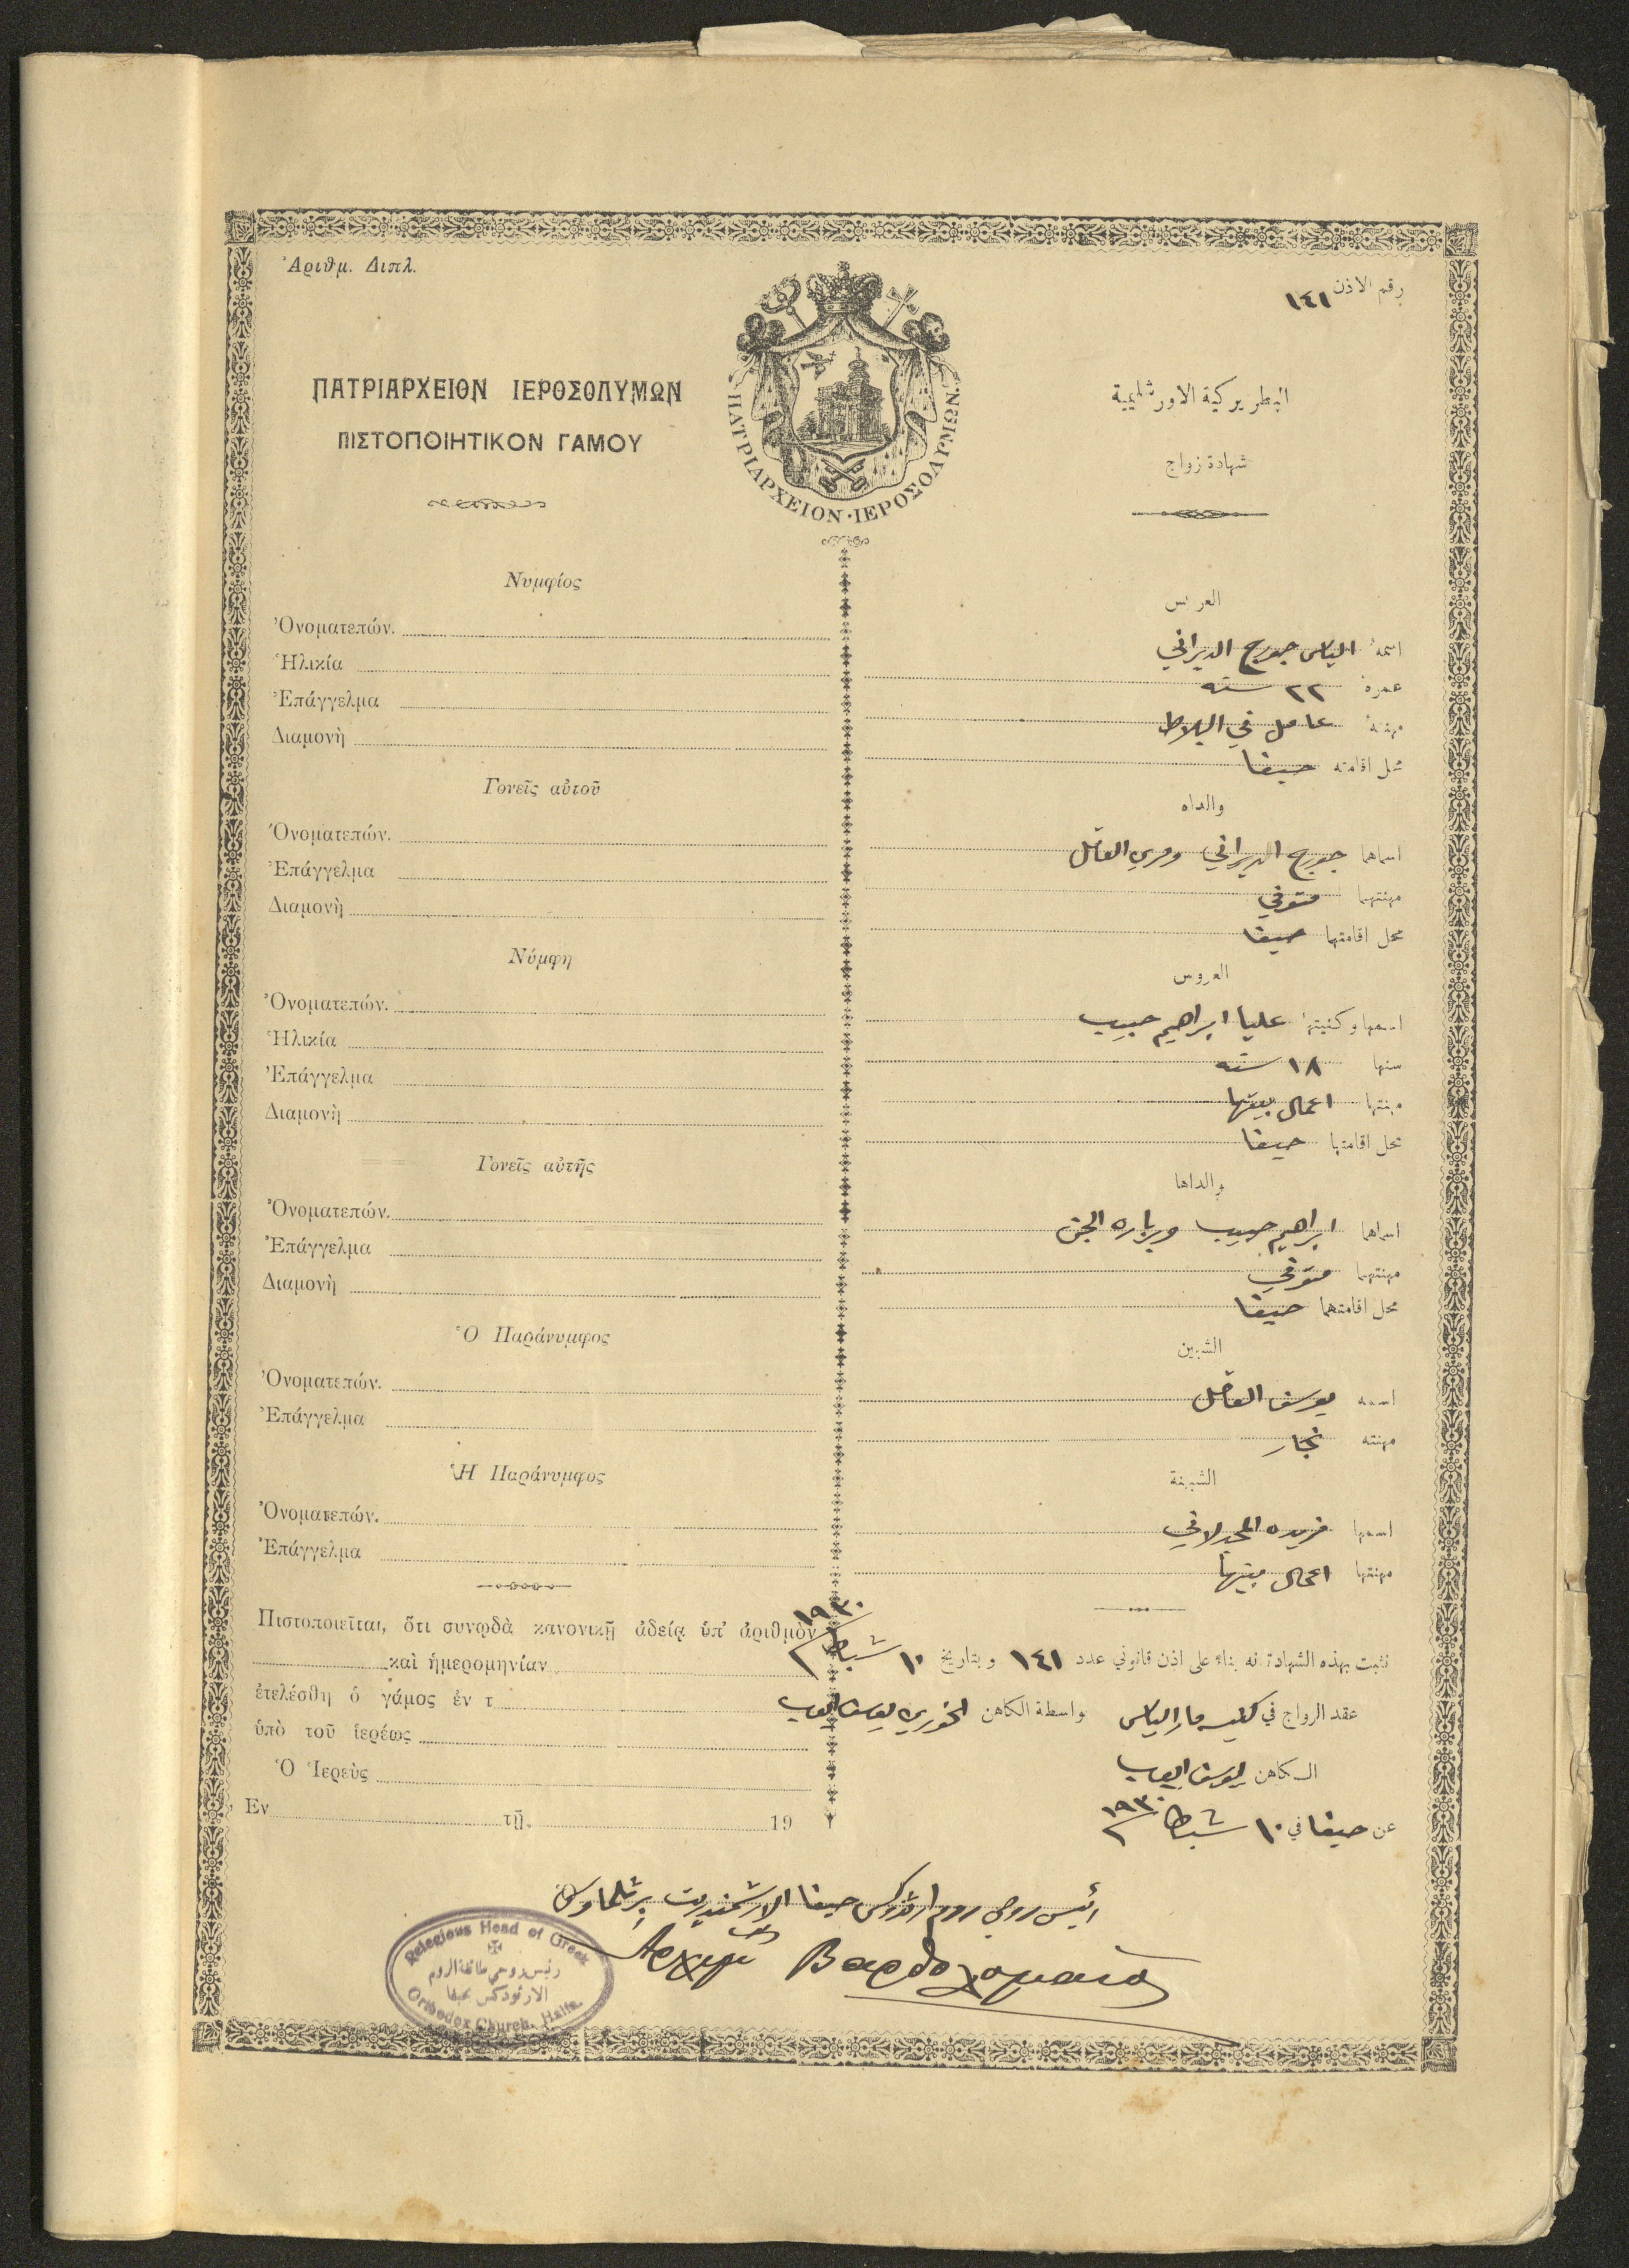 Ἀριθμ. Διπλ.
رقم الاذن ١٤١
ΠΑΤΡΙΑΡΧΕΙΟΝ ΙΕΡΟΣΟΛΥΜΩΝ
ΠΙΣΤΟΠΟΙΗΤΙΚΟΝ ΓΑΜΟΥ
ΠΑΤΡΙΑΡΧΕΙΟΝ · ΙΕΡΟΣΟΛΥΜΩΝ.
البطريركية الاورشليمية
شهادة زواج
Νυμφίος
Ὀνοματεπών.
Ἡλικία
Ἐπάγγελμα
Διαμονὴ
Γονεῖς αὐτοῦ
Ὀνοματεπών.
Ἐπάγγελμα
Διαμονὴ
Νύμφη
Ὀνοματεπών.
Ἡλικία
Ἐπάγγελμα
Διαμονὴ
Γονεῖς αὐτῆς
Ὀνοματεπών.
Ἐπάγγελμα
Διαμονὴ
Ὁ Παράνυμφος
Ὀνοματεπών.
Ἐπάγγελμα
Ἡ Παράνυμφος
Ὀνοματεπών.
Ἐπάγγελμα
Πιστοποιεῖται, ὅτι συνῳδὰ κανονικῇ ἀδείᾳ ὑπ' ἀριθμὸν
καὶ ἡμερομηνίαν
ἐτελέσθη ὁ γάμος ἐν τ
ὑπὸ τοῦ ἱερέως
Ὁ Ἱερεὺς
Ἐν τῇ 19
العريس
اسمه الياس جورج الديراني
عمره ٢٢ سنه
مهنته عامل في البلاط
محل اقامته حيفا
والداه
اسماهما جورج الديراني ومري العاقل
مهنتهما متوفي
محل اقامتهما حيفا
العروس
اسمها وكنيتها عليا ابراهيم حبيب
سنها ١٨ سنه
مهنتها اعمال بيتها
محل اقامتها حيفا
والداها
اسماهما ابراهيم حبيب وبرباره الجن
مهنتهما متوفي
محل اقامتهما حيفا
الشبين
اسمه يوسف العاقل
مهنته نجار
الشبينة
اسمها فريده المجدلاني
مهنتها اعمال بيتها
نثبت بهذه الشهادة انه بناء على اذن قانوني عدد ١٤١ وبتاريخ ١٠ شباط ١٩٣٠
عقد الزواج في كنيسة مار الياس بواسطة الكاهن الخوري يوسف ايوب
الكاهن يوسف ايوب
عن حيفا في ١٠ شباط ١٩٣٠
رئيس روحي روم ارثوذكس حيفا الارشمندريت برثلماوس
Ἀρχιμ Βαρθολομαῖος
Relegious Head of Greek
رئيس روحي طائفة الروم
الارثوذكس بحيفا
Orthodox Church. Haifa.